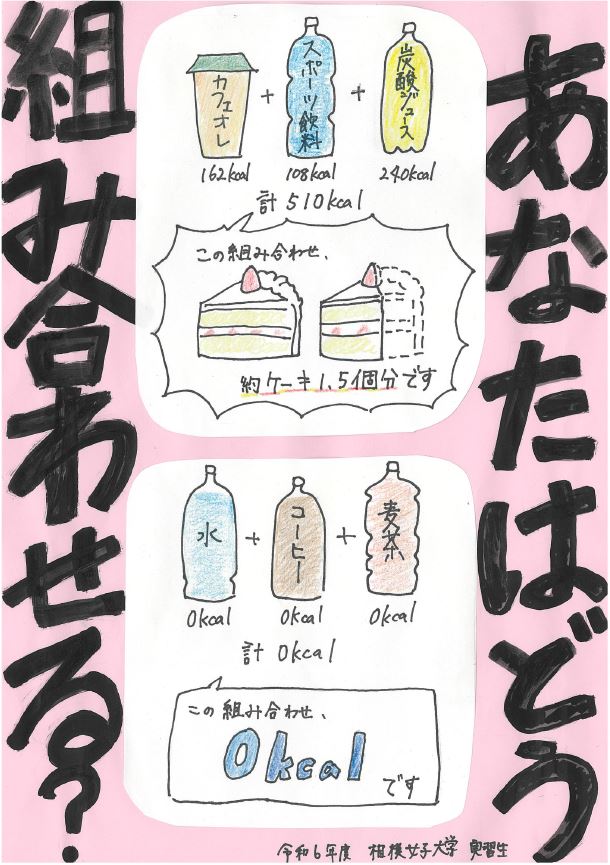 あなたはどう
組み合わせる?
カフェオレ
+
スポーツ飲料
+
炭酸ジュース
162kcal
108kcal
240kcal
計 510kcal
この組み合わせ、
約ケーキ1.5個分です
水
+
コーヒー
+
麦茶
0kcal
0kcal
0kcal
計 0kcal
この組み合わせ、
0kcal
です
令和6年度 相模女子大学 実習生